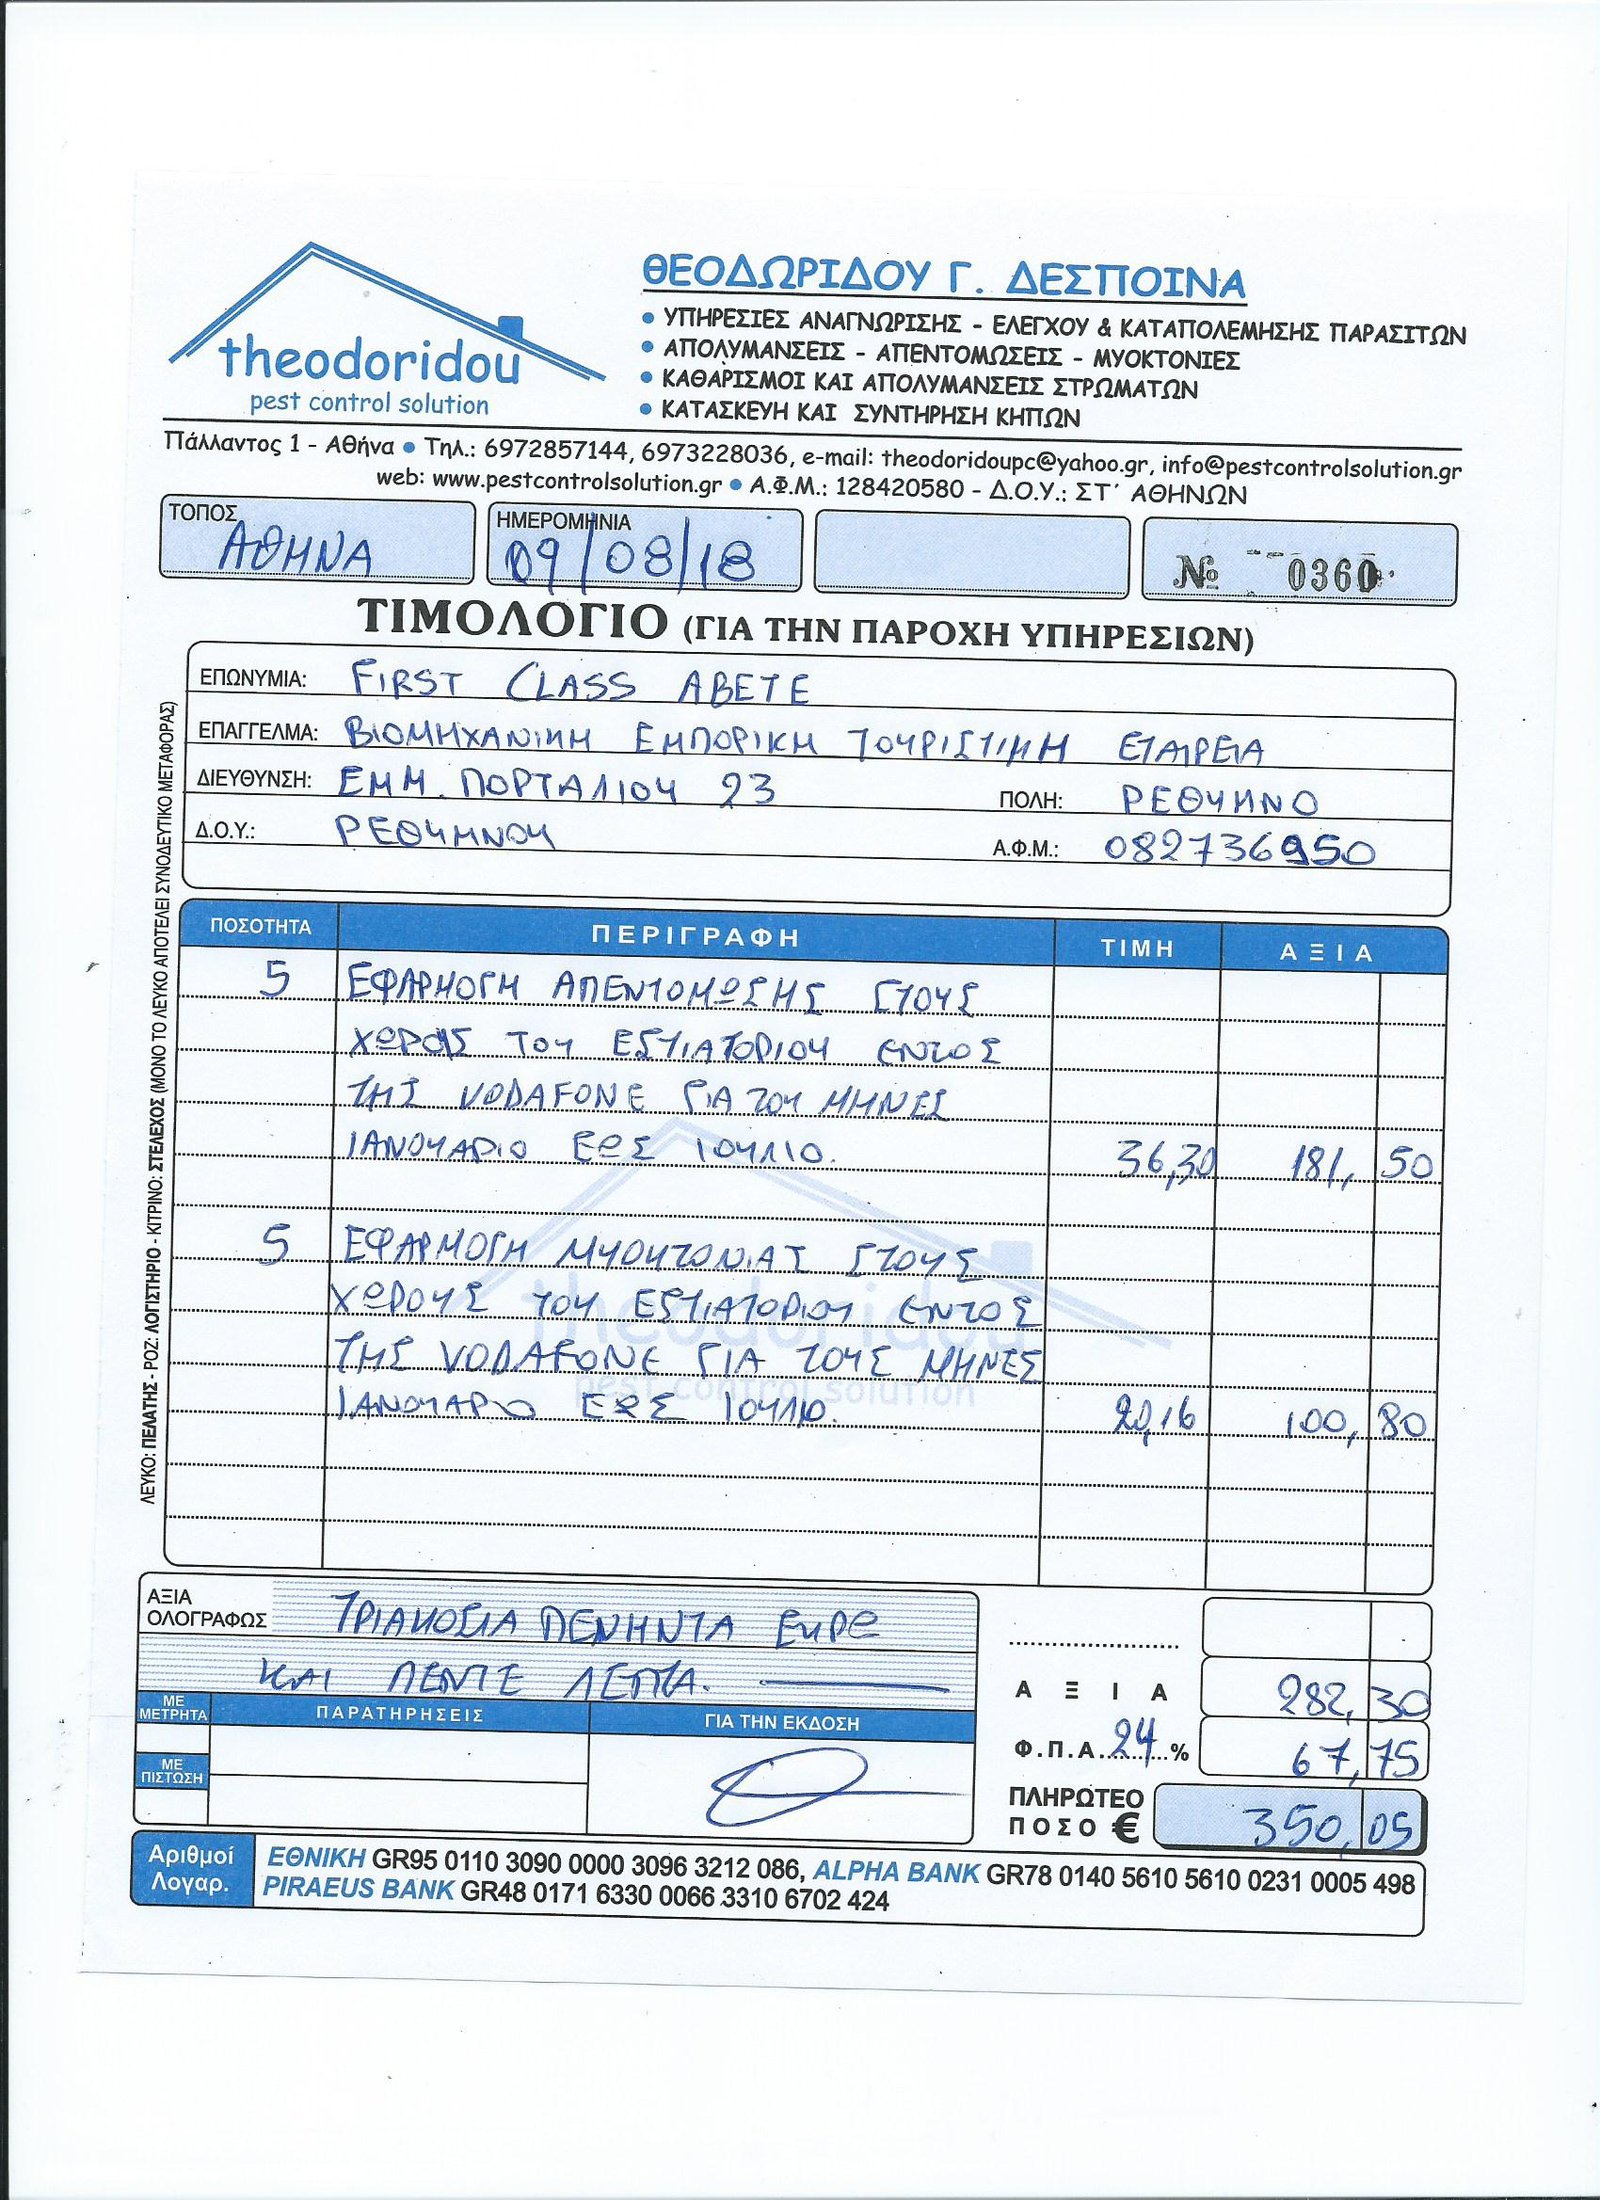 theodoridou
pest control solution
ΘΕΟΔΩΡΙΔΟΥ Γ. ΔΕΣΠΟΙΝΑ
• ΥΠΗΡΕΣΙΕΣ ΑΝΑΓΝΩΡΙΣΗΣ - ΕΛΕΓΧΟΥ & ΚΑΤΑΠΟΛΕΜΗΣΗΣ ΠΑΡΑΣΙΤΩΝ
• ΑΠΟΛΥΜΑΝΣΕΙΣ - ΑΠΕΝΤΟΜΩΣΕΙΣ - ΜΥΟΚΤΟΝΙΕΣ
• ΚΑΘΑΡΙΣΜΟΙ ΚΑΙ ΑΠΟΛΥΜΑΝΣΕΙΣ ΣΤΡΩΜΑΤΩΝ
• ΚΑΤΑΣΚΕΥΗ ΚΑΙ ΣΥΝΤΗΡΗΣΗ ΚΗΠΩΝ
Πάλλαντος 1 - Αθήνα • Τηλ.: 6972857144, 6973228036, e-mail: theodoridoupc@yahoo.gr, info@pestcontrolsolution.gr
web: www.pestcontrolsolution.gr • Α.Φ.Μ.: 128420580 - Δ.Ο.Υ.: ΣΤ΄ ΑΘΗΝΩΝ
ΤΟΠΟΣ ΑΘΗΝΑ
ΗΜΕΡΟΜΗΝΙΑ 09/08/18
№ 0360
ΤΙΜΟΛΟΓΙΟ (ΓΙΑ ΤΗΝ ΠΑΡΟΧΗ ΥΠΗΡΕΣΙΩΝ)
ΕΠΩΝΥΜΙΑ: FIRST CLASS ΑΒΕΤΕ
ΕΠΑΓΓΕΛΜΑ: ΒΙΟΜΗΧΑΝΙΚΗ ΕΜΠΟΡΙΚΗ ΤΟΥΡΙΣΤΙΚΗ ΕΤΑΙΡΕΙΑ
ΔΙΕΥΘΥΝΣΗ: ΕΜΜ. ΠΟΡΤΑΛΙΟΥ 23 ΠΟΛΗ: ΡΕΘΥΜΝΟ
Δ.Ο.Υ.: ΡΕΘΥΜΝΟΥ Α.Φ.Μ.: 082736950
ΛΕΥΚΟ: ΠΕΛΑΤΗΣ - ΡΟΖ: ΛΟΓΙΣΤΗΡΙΟ - ΚΙΤΡΙΝΟ: ΣΤΕΛΕΧΟΣ (ΜΟΝΟ ΤΟ ΛΕΥΚΟ ΑΠΟΤΕΛΕΙ ΣΥΝΟΔΕΥΤΙΚΟ ΜΕΤΑΦΟΡΑΣ)
ΠΟΣΟΤΗΤΑ ΠΕΡΙΓΡΑΦΗ ΤΙΜΗ ΑΞΙΑ
5 ΕΦΑΡΜΟΓΗ ΑΠΕΝΤΟΜΩΣΗΣ ΣΤΟΥΣ
ΧΩΡΟΥΣ ΤΟΥ ΕΣΤΙΑΤΟΡΙΟΥ ΕΝΤΟΣ
ΤΗΣ VODAFONE ΓΙΑ ΤΟΥ ΜΗΝΕΣ
ΙΑΝΟΥΑΡΙΟ ΕΩΣ ΙΟΥΛΙΟ. 36,30 181,50
5 ΕΦΑΡΜΟΓΗ ΜΥΟΚΤΟΝΙΑΣ ΣΤΟΥΣ
ΧΩΡΟΥΣ ΤΟΥ ΕΣΤΙΑΤΟΡΙΟΥ ΕΝΤΟΣ
theodoridou
ΤΗΣ VODAFONE ΓΙΑ ΤΟΥΣ ΜΗΝΕΣ
pest control solution
ΙΑΝΟΥΑΡΙΟ ΕΩΣ ΙΟΥΛΙΟ. 20,16 100,80
ΑΞΙΑ
ΟΛΟΓΡΑΦΩΣ ΤΡΙΑΚΟΣΙΑ ΠΕΝΗΝΤΑ ΕΥΡΩ
ΚΑΙ ΠΕΝΤΕ ΛΕΠΤΑ.
ΑΞΙΑ 282,30
ΜΕ
ΜΕΤΡΗΤΑ ΠΑΡΑΤΗΡΗΣΕΙΣ ΓΙΑ ΤΗΝ ΕΚΔΟΣΗ
Φ.Π.Α. 24 % 67,75
ΜΕ
ΠΙΣΤΩΣΗ
ΠΛΗΡΩΤΕΟ
ΠΟΣΟ € 350,05
Αριθμοί
Λογαρ.
ΕΘΝΙΚΗ GR95 0110 3090 0000 3096 3212 086, ALPHA BANK GR78 0140 5610 5610 0231 0005 498
PIRAEUS BANK GR48 0171 6330 0066 3310 6702 424